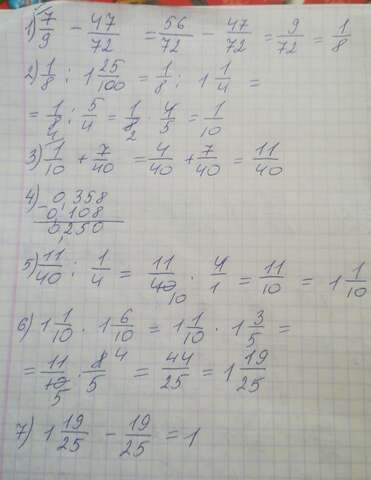 1) 7/9 - 47/72 = 56/72 - 47/72 = 9/72 = 1/8
2) 1/8 : 1 25/100 = 1/8 : 1 1/4 =
= 1/8 : 5/4 = 1/8 2 · 4/5 = 1/10
3) 1/10 + 7/40 = 4/40 + 7/40 = 11/40
4) 0,358
- 0,108
0,250
5) 11/40 : 1/4 = 11/40 10 · 4/1 = 11/10 = 1 1/10
6) 1 1/10 · 1 6/10 = 1 1/10 · 1 3/5 =
= 11/10 5 · 8/5 4 = 44/25 = 1 19/25
7) 1 19/25 - 19/25 = 1